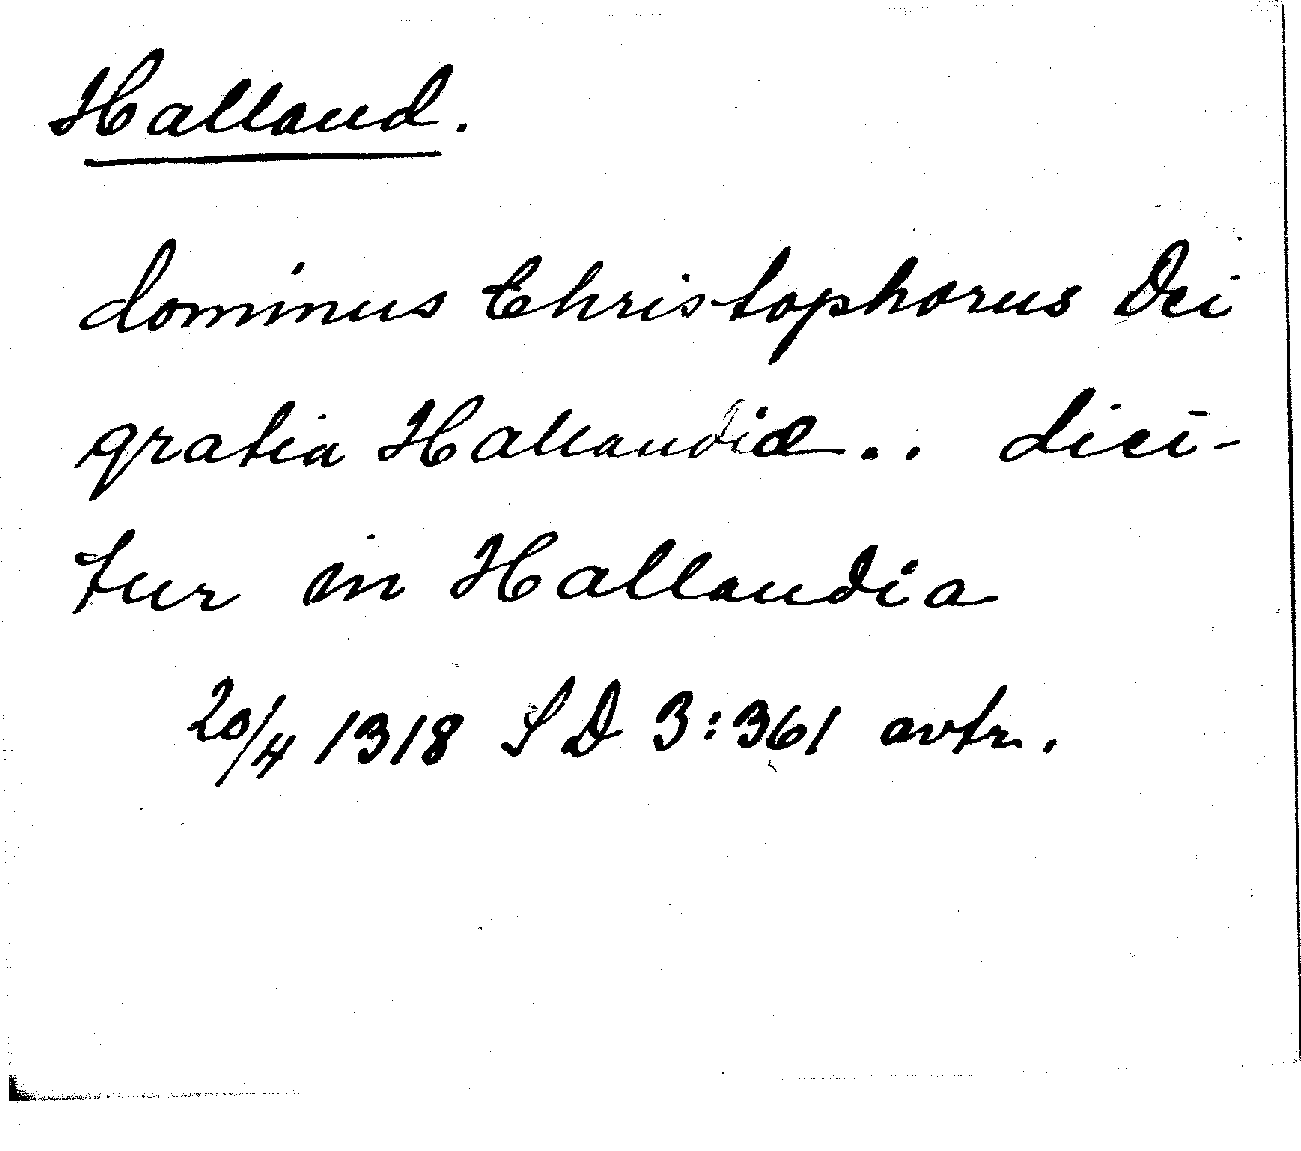 Halland.
dominus Christophorus Dei
gratia Hallandiæ.. dici-
tur in Hallandia
20/4 1318 SD 3:361 avtr.